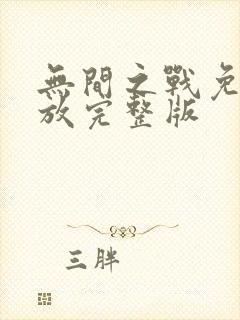 無間之戰免
放完整版
三胖